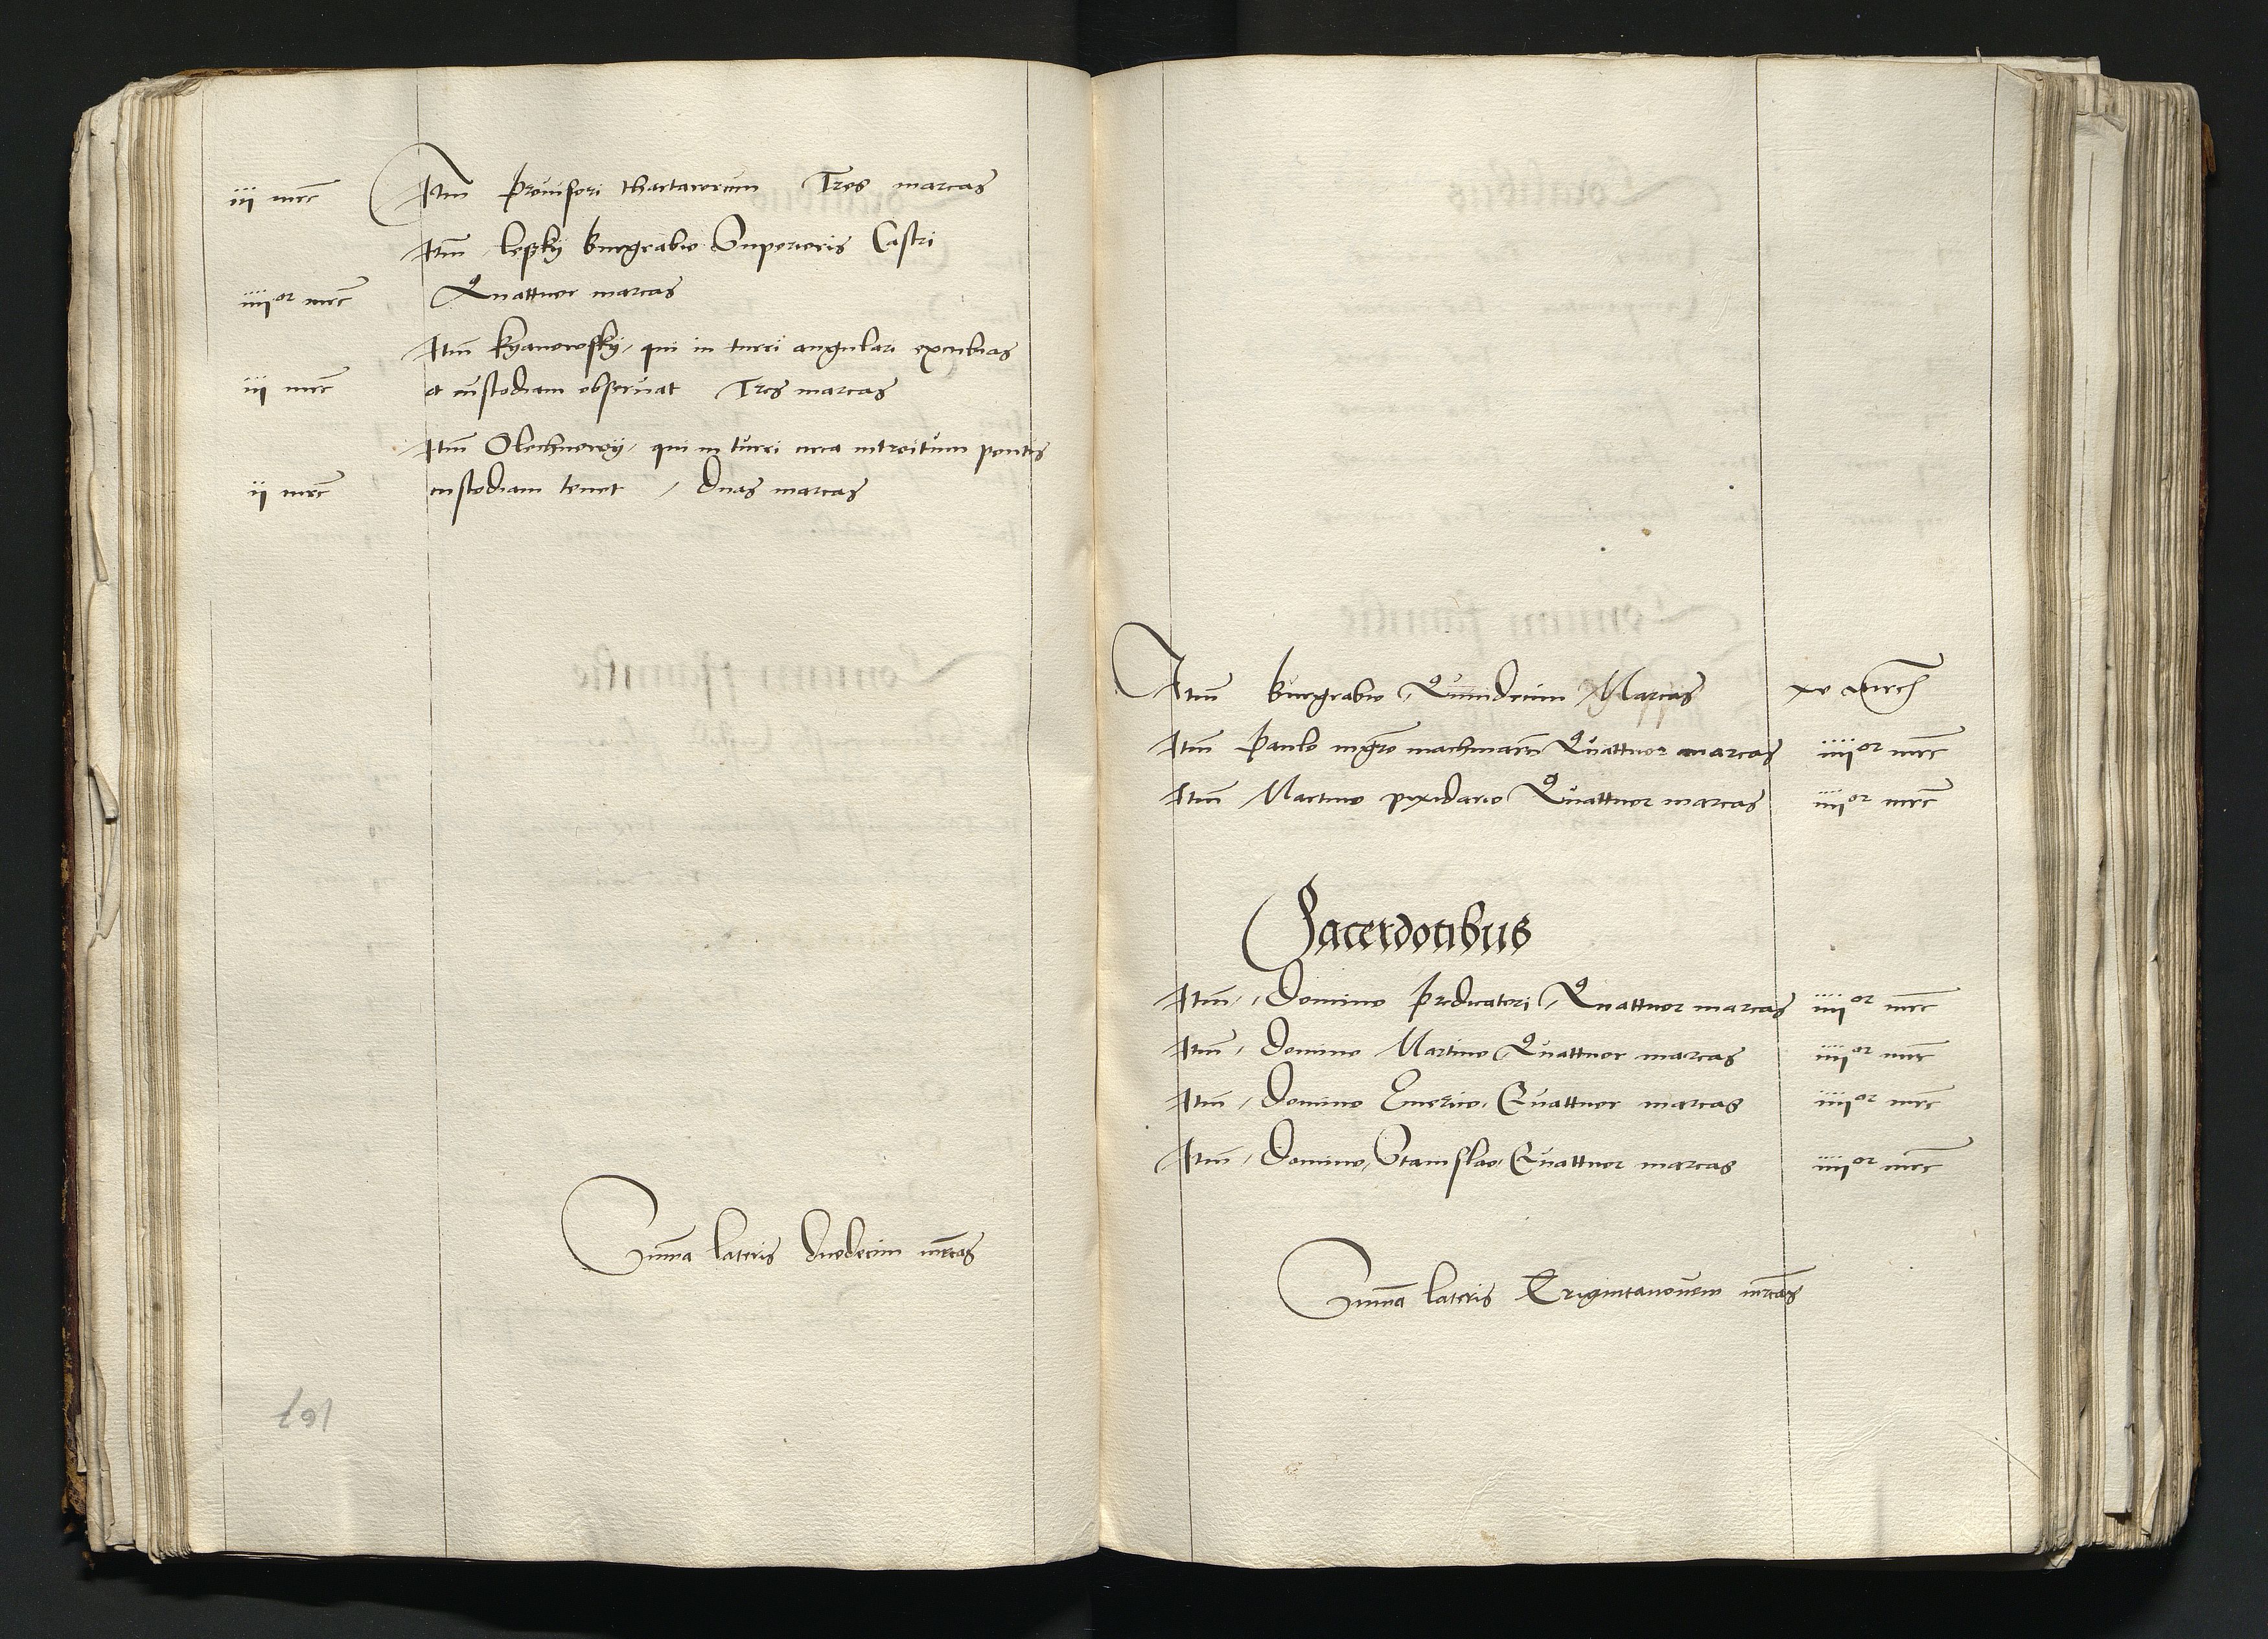 iij mrc Itm Prouisori thartarorum Tres marcas
Itm lepsky burgrabio Superioris Castri
iiij or mrc Quattuor marcas
Itm kyanowsky, qui in turri angulari excubias
iij mrc et custodiam obseruat Tres marcas
Itm Olechnowÿ, qui in turri circa introitum pontis
ij mrc custodiam tenet / Duas marcas
Summa lateris duodecim mrcas
167
Itm burgrabio Quindecim Marcas xv mrc
Itm Paulo mgro machinarũ Quattuor marcas iiij or mrc
Itm Martino pixidario Quattuor marcas iiij or mrc
Sacerdotibus
Itm, Domino Predicatori, Quattuor marcas iiij or mrc
Itm, Domino Martino Quattuor marcas iiij or mrc
Itm, Domino Quattuor marcas iiij or mrc
Itm, Domino, Stanislao, Quattuor marcas iiij or mrc
Summa lateris Trigintanouem mrcas